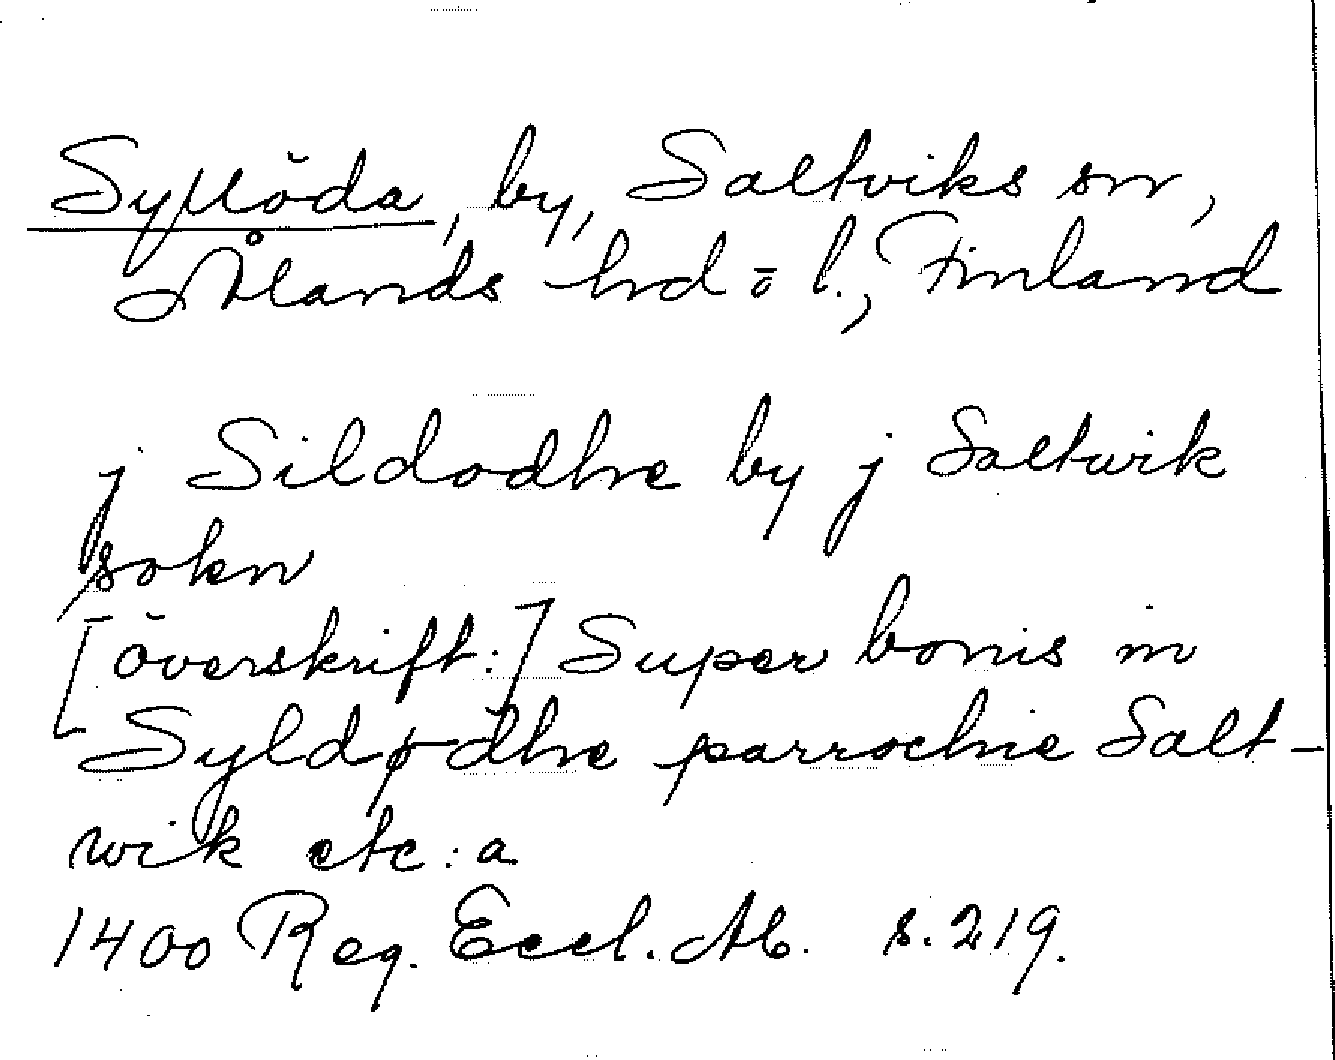 Syllöda, by, Saltviks sn,
Ålands hd o l., Finland
j Sildodhe by j Saltwik
sokn
[överskrift:] Super bonis in
Syldødhe parrochie Salt-
wik etc:a
1400 Reg. Eccl. Ab. s. 219.